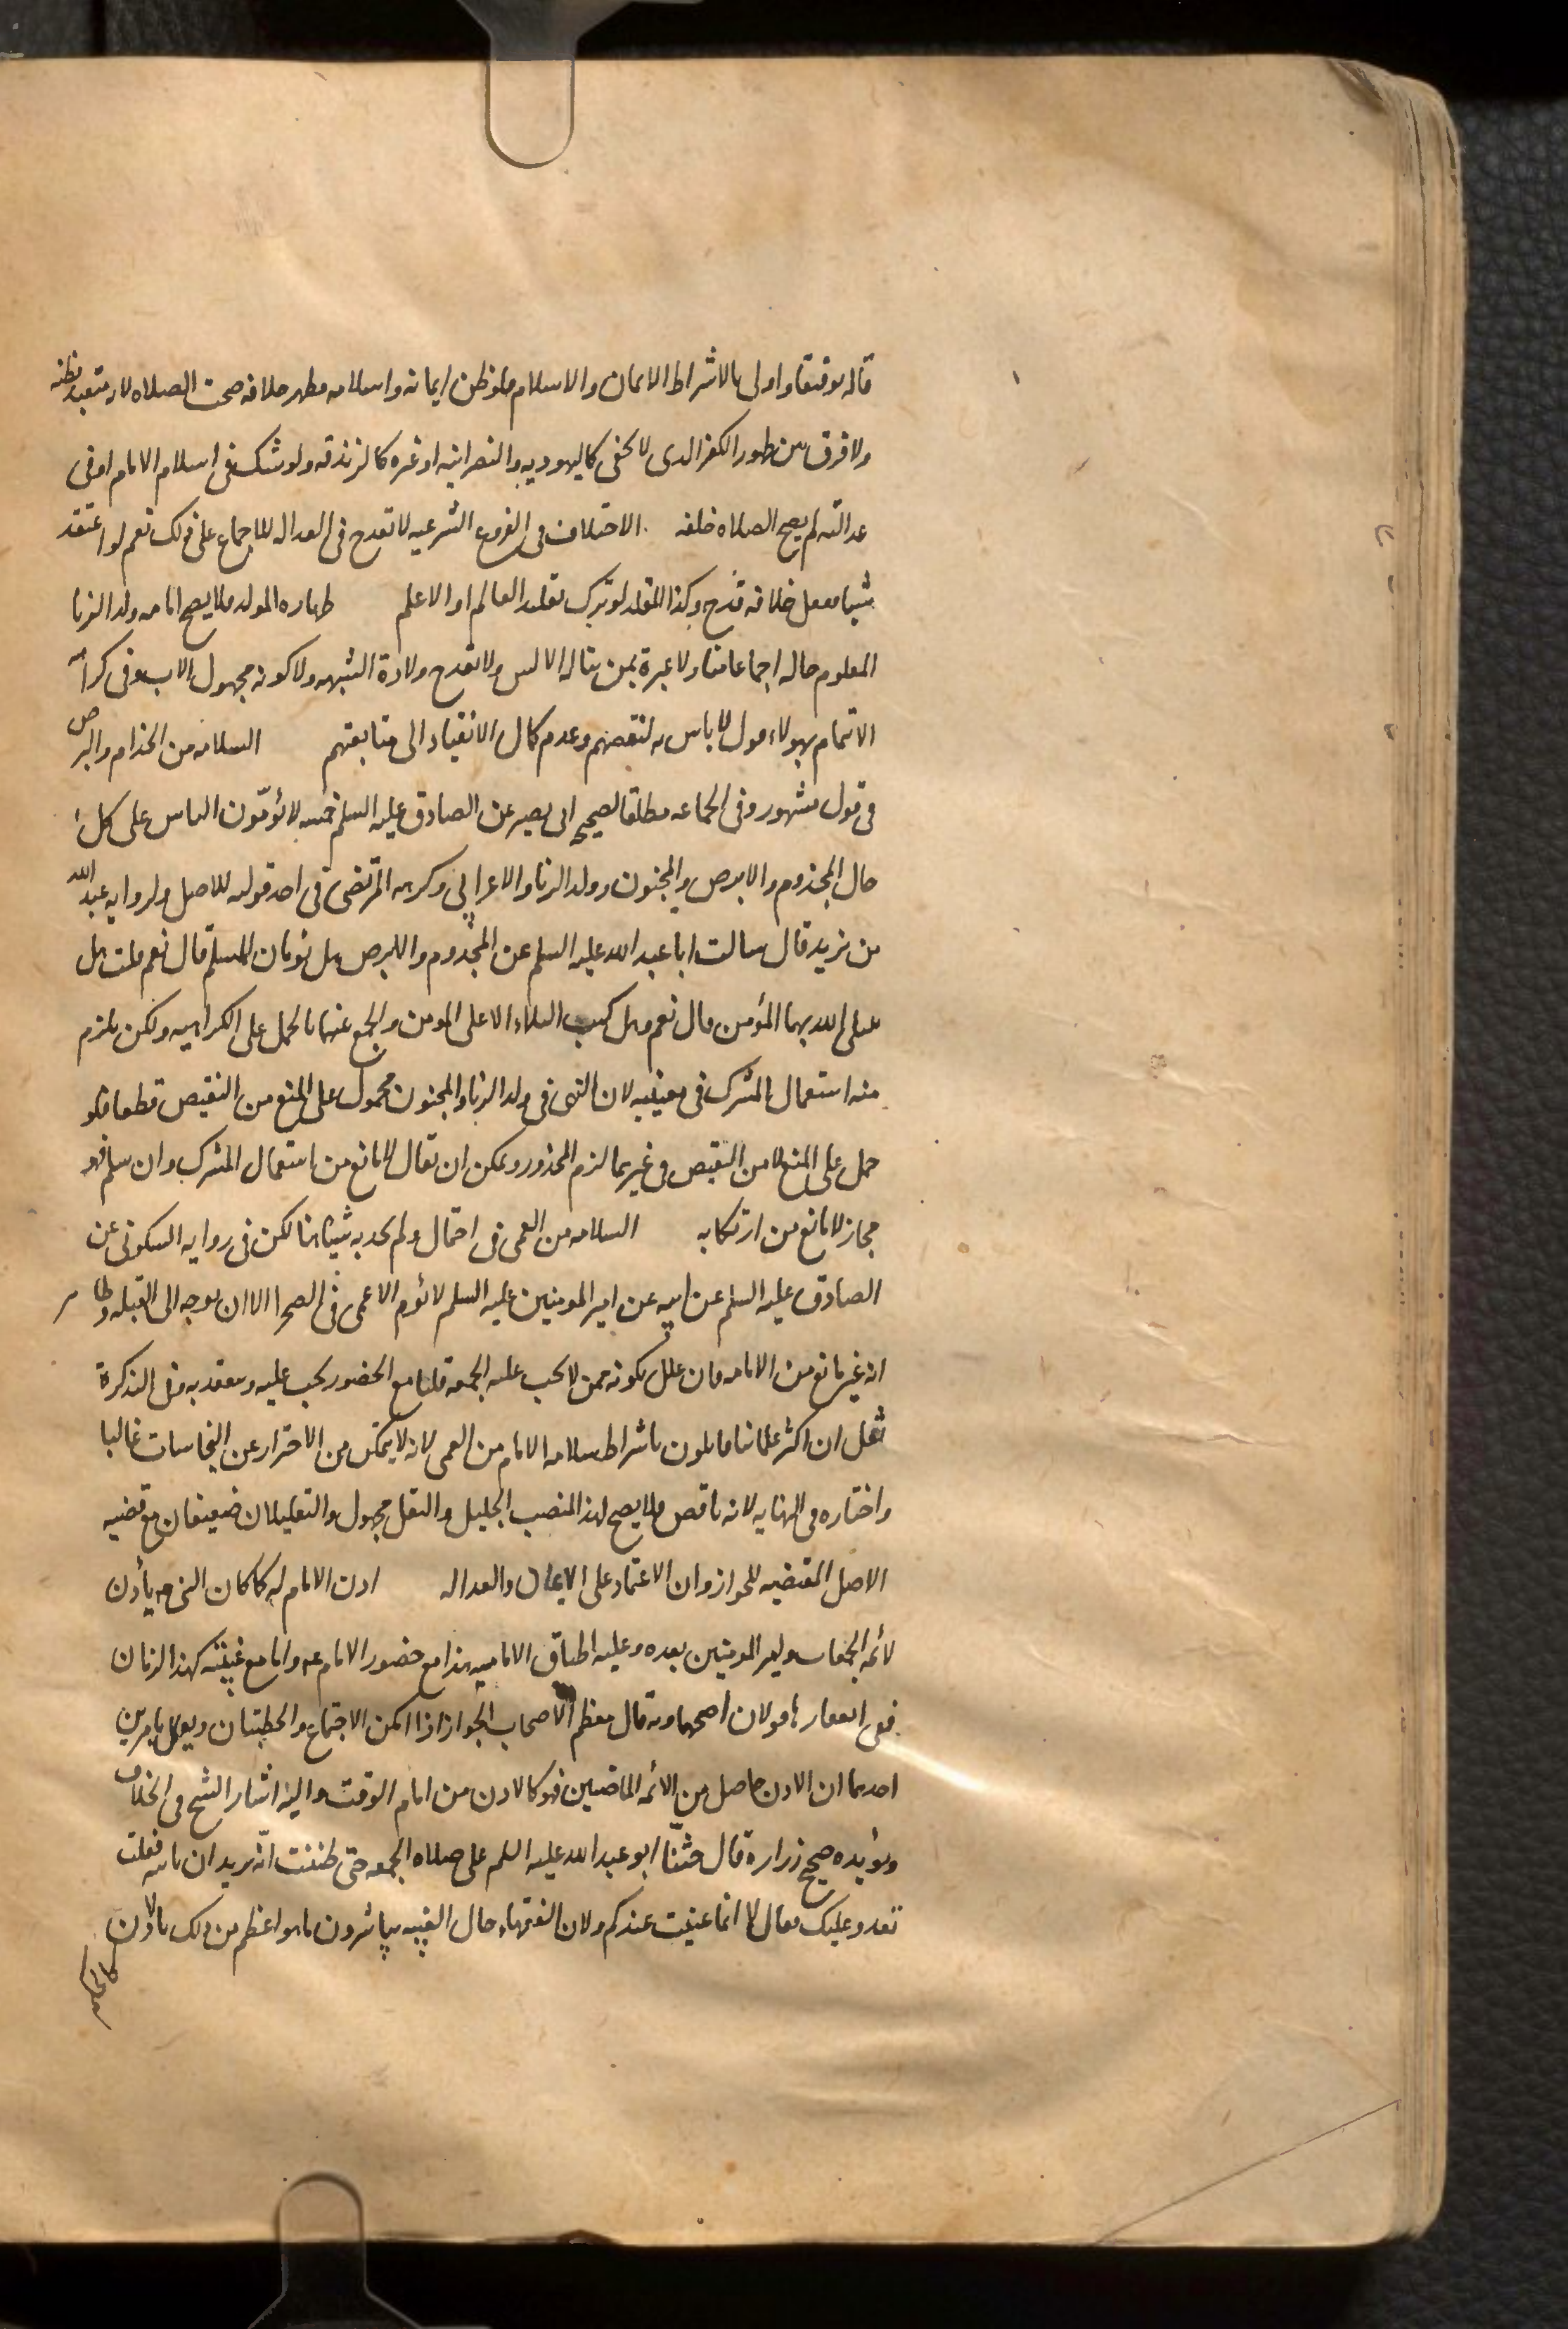 قاله توقيفا واولى بالاشتراط الايمان والاسلام فلو ظن ايمانه واسلامه فظهر خلافه صحت الصلاة لانه متعبد بظنه
ولا فرق بين ظهور الكفر الذى لا يخفى كاليهودية والنصرانية او غيره كالزندقة ولو شك فى اسلام الامام او فى
عدالته لم يصح الصلاة خلفه الاختلاف فى الفروع الشرعية لا تقدح فى العدالة للاجماع على ذلك نعم لو اعتقد
شيئا ففعل خلافه قدح وكذا المقلد لو ترك تقليد العالم او الاعلم طهارة المولد فلا يصح امامه ولد الزنا
المعلوم حاله اجماعا منا ولا عبرة بمن يناله الالسن ولا تقدح ولادة الشبهه ولا كونه مجهول الاب وفى كراهة
الائتمام بهولاء قول لا باس به لنقصهم وعدم كمال الانقياد الى متابعتهم السلامه من الجذام والبرص
فى قول مشهور وفى الجماعه مطلقا لصحيح ابى بصير عن الصادق عليه السلم خمسه لا يؤمّون الناس على كل
حال المجذوم والابرص والمجنون وولد الزنا والاعرابى وكرهه المرتضى فى احد قوليه للاصل ولروايه عبد الله
بن يزيد قال سالت ابا عبد الله عليه السلم عن المجذوم والابرص هل يؤمان المسلم قال نعم قلت هل
يبتلى الله بهما المؤمن قال نعم وهل كتب البلاء الا على المومن والجمع عنهما بالحمل على الكراهيه ولكن يلزم
منه استعمال المشترك فى معنييه لان النهى فى ولد الزنا والمجنون محمول على المنع من النقيض قطعا فلو
حمل على المنع لا من النقيض فى غيرهما لزم المحذور ويمكن ان يقال لا مانع من استعمال المشترك وان سلم فهو
مجاز لا مانع من ارتكابه السلامه من العمى فى احتمال ولم نجد به شيئا هنا لكن فى روايه السكونى عن
الصادق عليه السلم عن ابيه عن امير المومنين عليه السلم لا يؤم الاعمى فى الصحرا الا ان يوجه الى القبله وظاهر
انه غير مانع من الامامه فان علل بكونه ممن لا يجب عليه الجمعه قلنا مع الحضور يجب عليه وينعقد به وفى التذكرة
نقل ان اكثر علمائنا قايلون باشتراط سلامه الامام من العمى لانه لا يتمكن من الاحتراز عن النجاسات غالبا
واختاره فى النهايه لانه ناقص فلا يصح لهذا المنصب الجليل والنقل مجهول والتعليلان ضعيفان مع قضيه
الاصل المقتضيه للجواز وان الاعتماد على الايمان والعداله اذن الامام له كما كان النبى ص يأذن
لائمه الجمعات وامير المومنين بعده وعليه اطباق الاماميه هذا مع حضور الامام عه واما مع غيبته كهذا الزمان
ففى انعقادها قولان اصحهما وبه قال معظم الاصحاب الجواز اذا امكن الاجتماع والخطبتان ويعلل بامرين
احدهما ان الاذن حاصل من الائمه الماضيين فهو كالاذن من امام الوقت واليه اشار الشيخ فى الخلاف
ويؤيده صحيح زرارة قال حثّنا ابو عبد الله عليه السلم على صلاة الجمعه حتى ظننت انّه يريد ان ناتيه فقلت
نغدو عليك فقال لا انما عنيت عندكم ولان الفقهاء حال الغيبه يباشرون ما هو اعظم من ذلك بالاذن
كالحكم